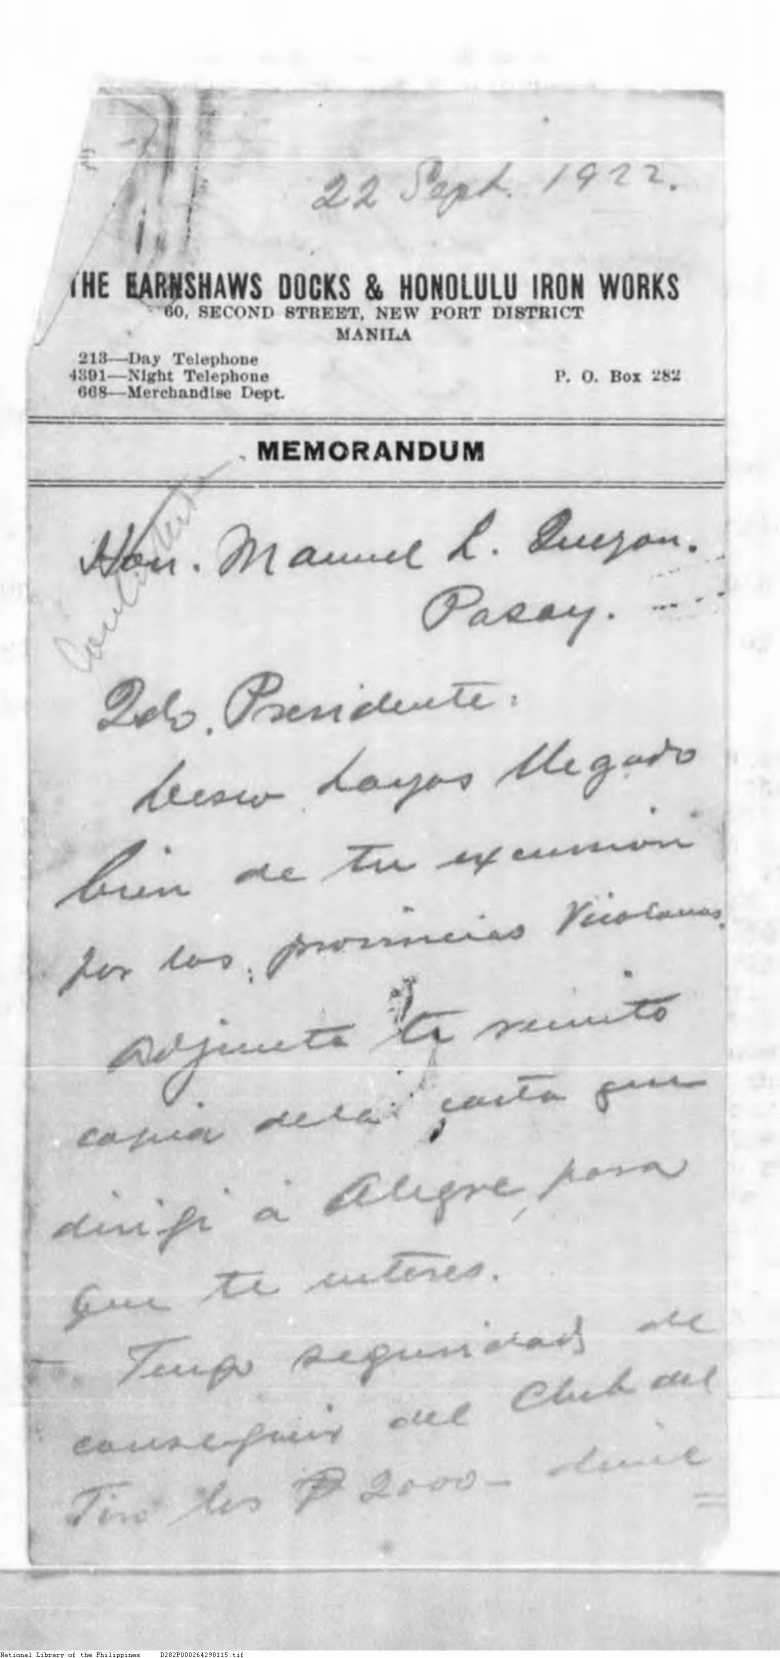 22 Sept. 1922.
THE EARNSHAWS DOCKS & HONOLULU IRON WORKS
60, SECOND STREET, NEW PORT DISTRICT
MANILA
213—Day Telephone
4391—Night Telephone
P. O. Box 282
668—Merchandise Dept.
MEMORANDUM
Hon. Manuel L. Quezon.
Pasay.
Qdo. Presidente:
Deseo hayas llegado
bien de tu excursion
por las provincias Vicolanas.
Adjunta te remito
copia dela carta que
dirigi á Alegre, para
que te enteres.
Tengo seguridad de
conseguir del Club del
Tiro los ₱ 2000—
National Library of the Philippines D282P000264290115.tif